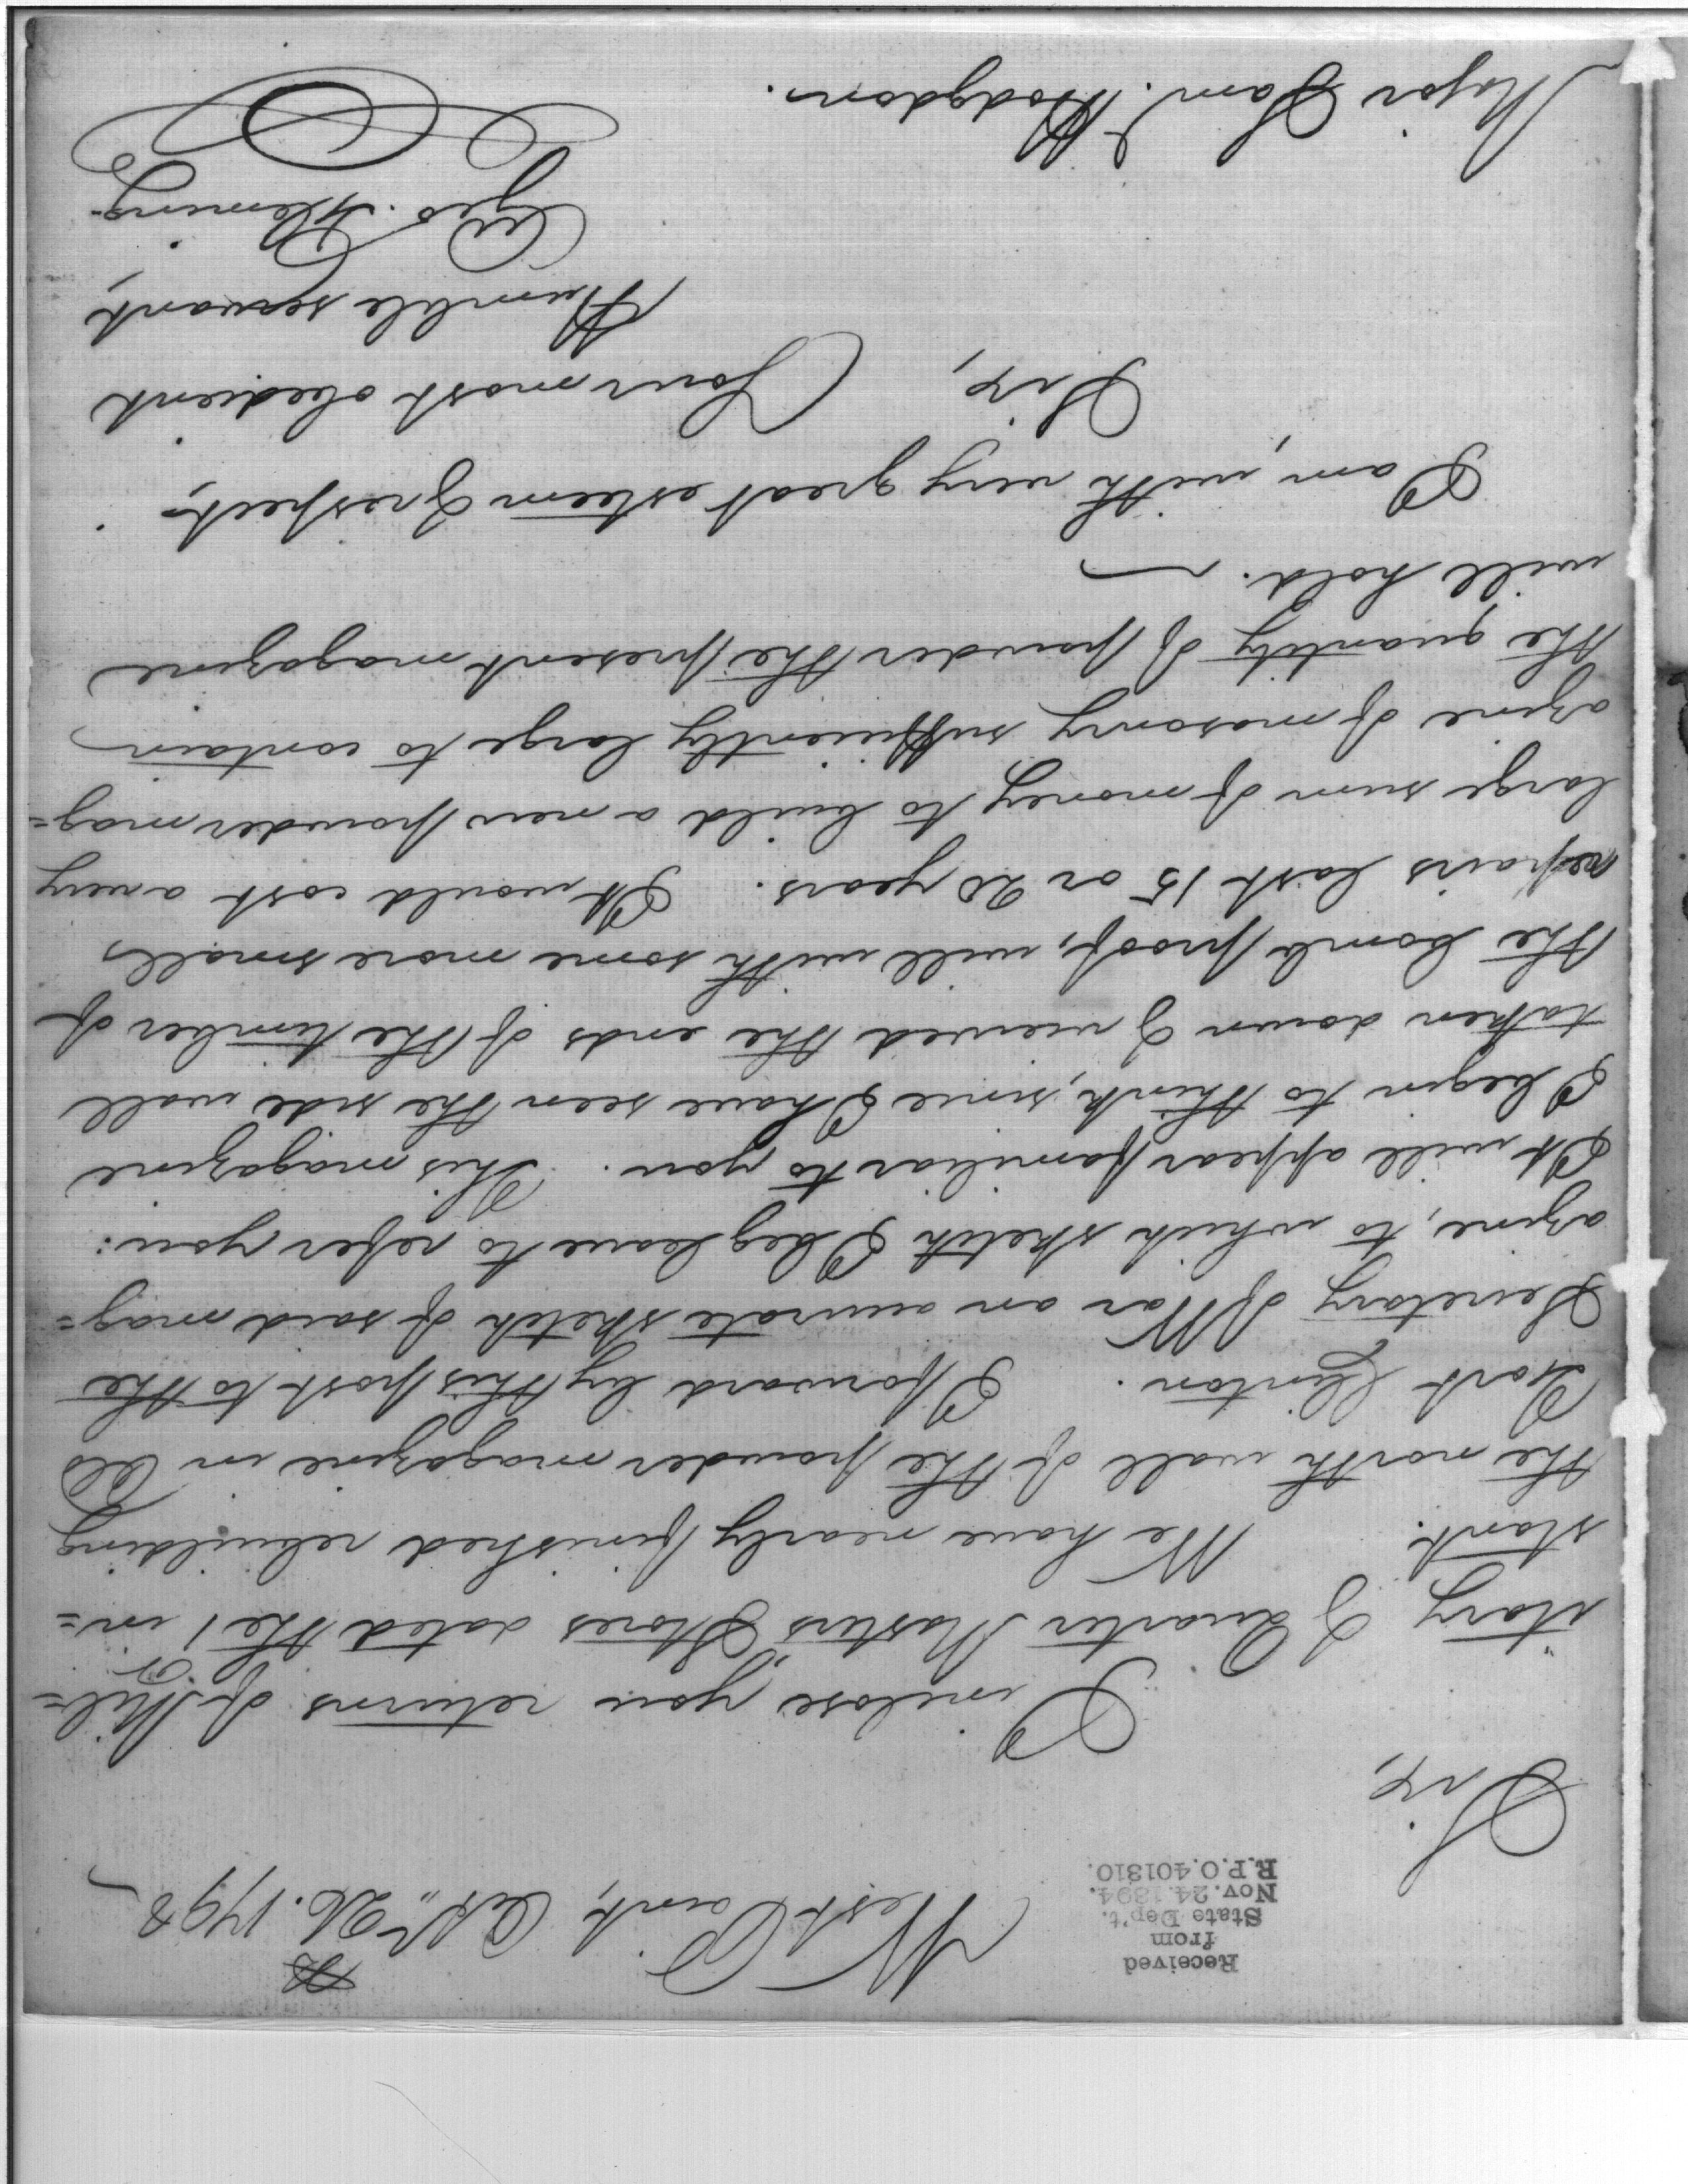 Received
from
State Dep't.
Nov. 24. 1894.
R.P.O. 401310.
West Point, Oct. 26. 1798
Sir,
I inclose you returns of Mil=
itary & Quarter Masters Stores dated the 1 in=
stant. We have nearly finished rebuilding
the north wall of the powder magazine in Old
Fort Clinton. I forward by this post to the
Secretary of War an accurate sketch of said mag=
azine, to which sketch I beg leave to refer you:
It will appear familiar to you. This magazine
I begin to think, since I have seen the side wall
taken down & viewed the ends of the timber of
the bomb proof, will with some more small
repairs last 15 or 20 years. It would cost a very
large sum of money to build a new powder mag=
azine of masonry sufficiently large to contain
the quantity of powder the present magazine
will hold.
I am, with very great esteem & respect,
Sir,
Your most obedient
Humble servant,
Geo. Fleming
Major Sam. Hodgdon.